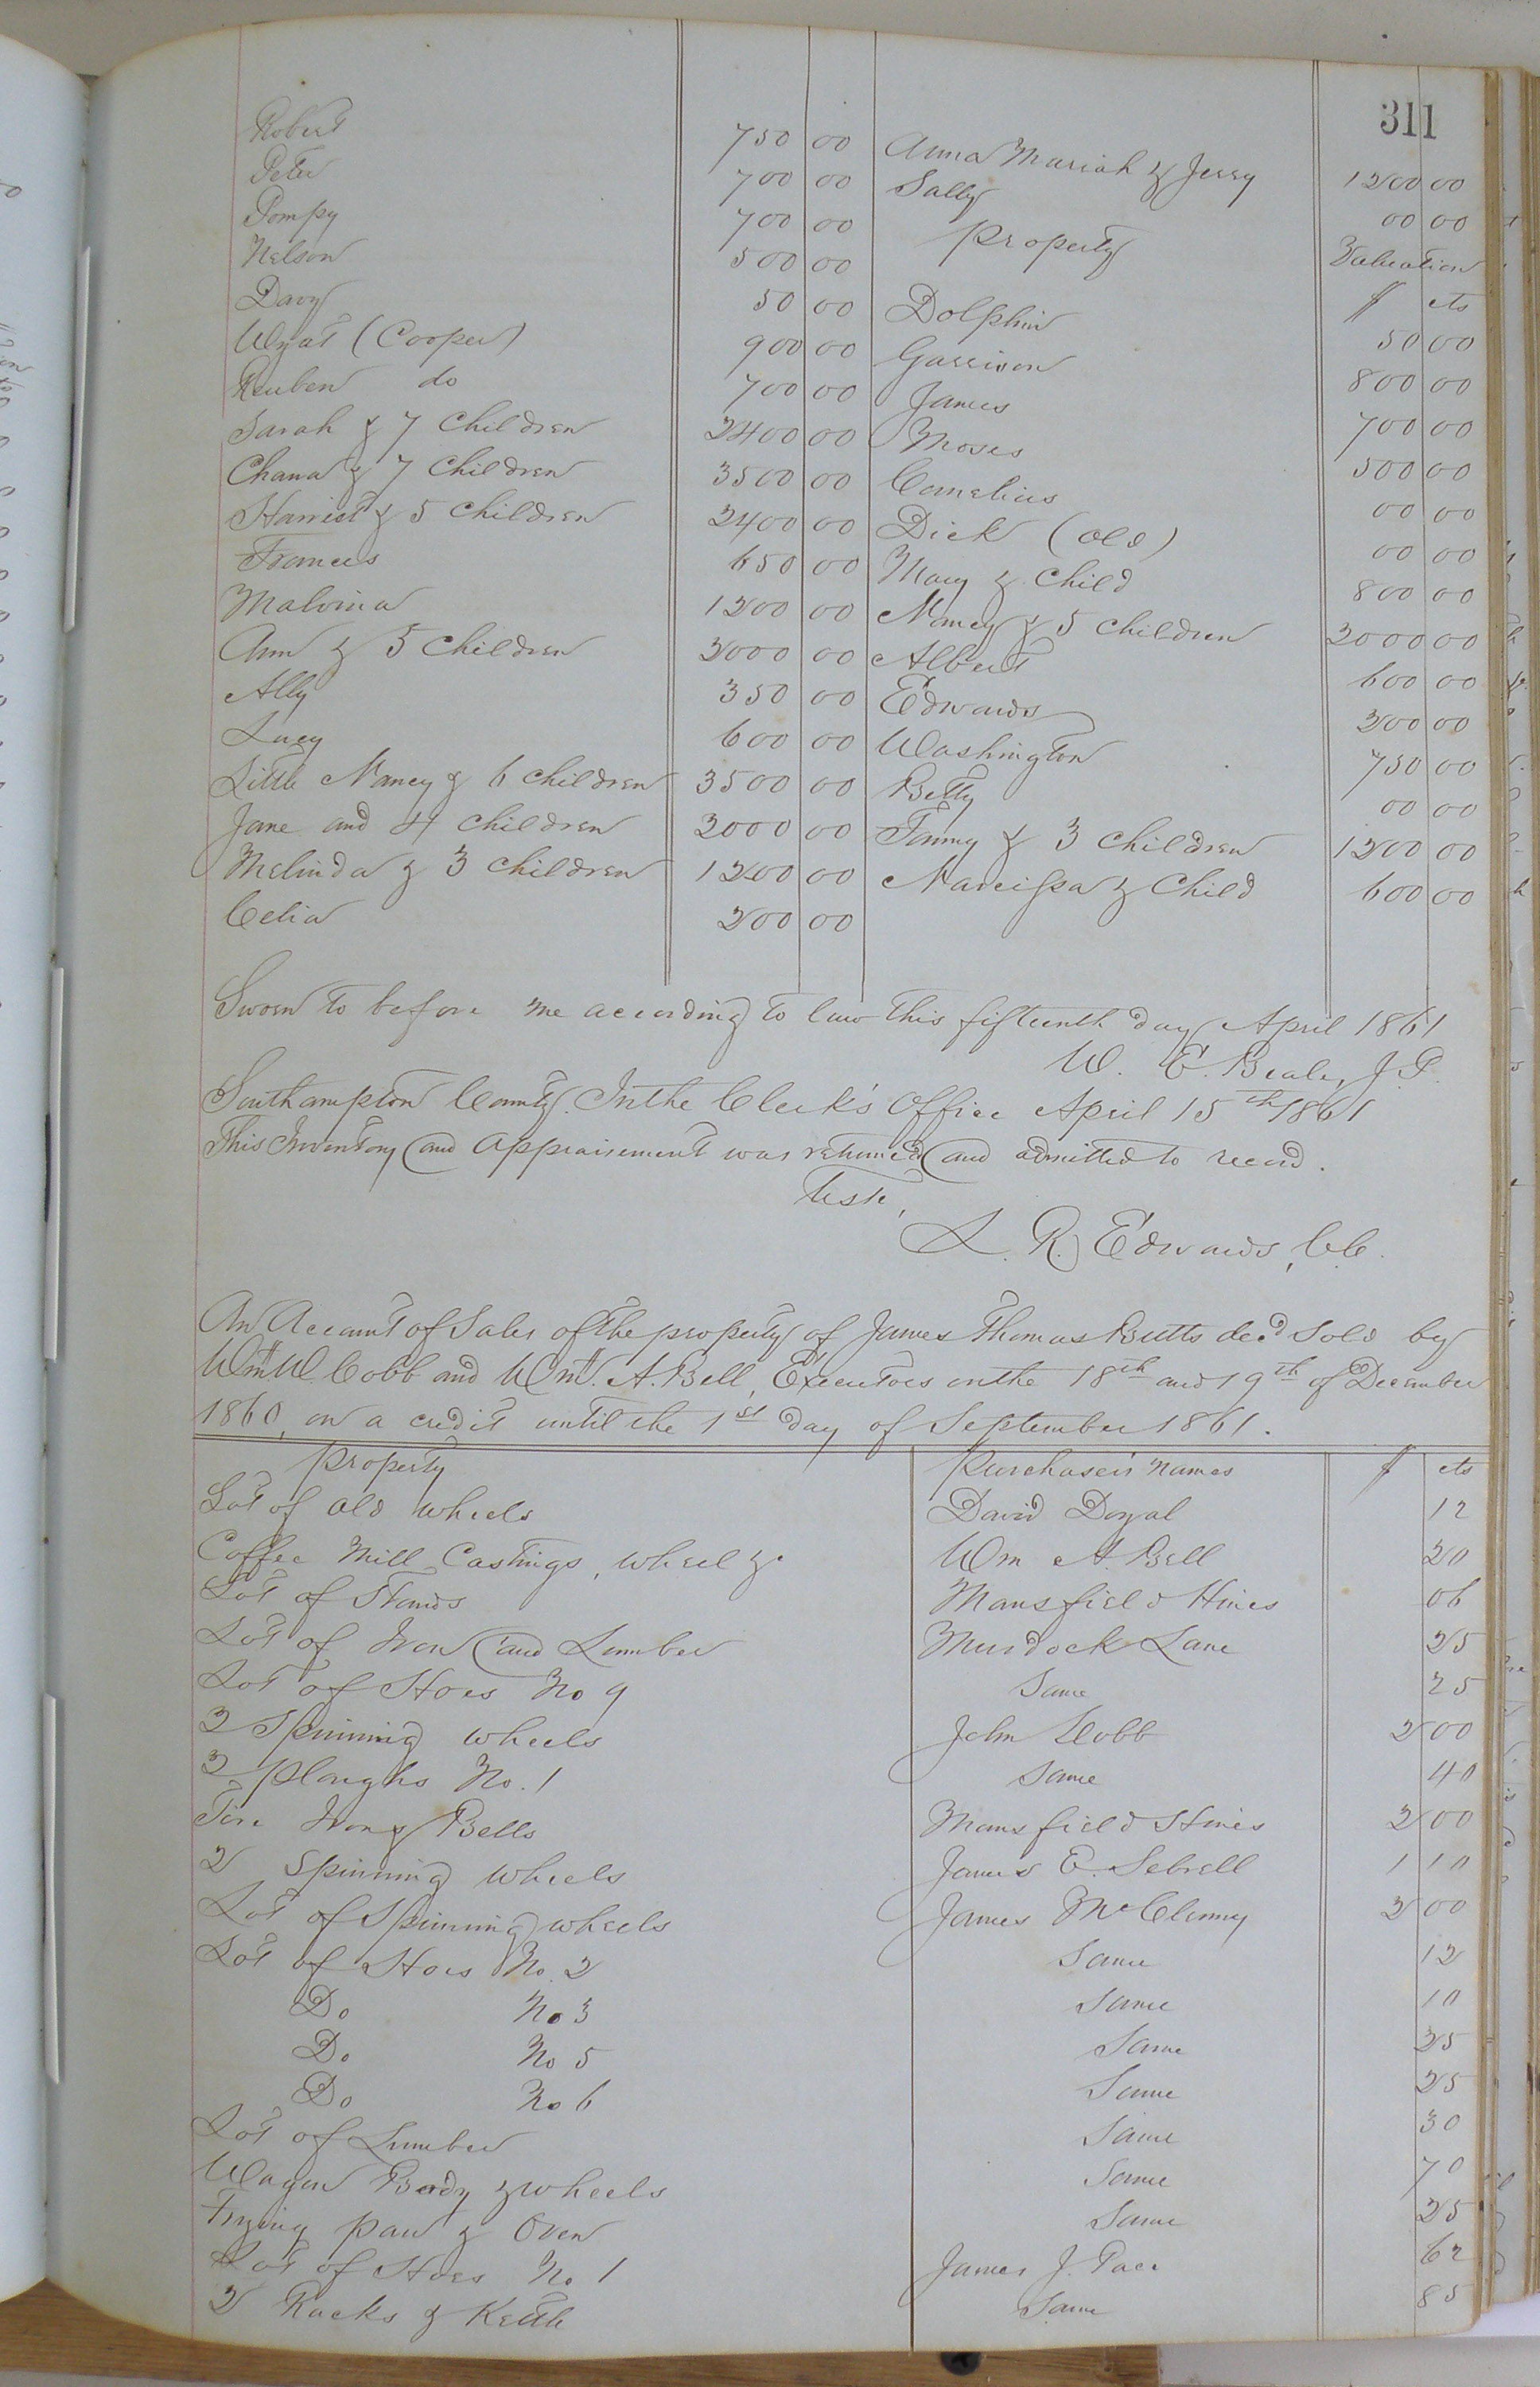 311
Robert 750 00
Peter 700 00
Pompy 700 00
Nelson 500 00
Davy 50 00
Wyat (Cooper) 900 00
Reuben do 700 00
Sarah & 7 Children 2400 00
Chana & 7 Children 3500 00
Harriet & 5 Children 2400 00
Frances 650 00
Malvina 1200 00
Ann & 5 Children 2000 00
Ally 350 00
Lucy 600 00
Little Nancy & 6 Children 3500 00
Jane and 4 Children 2000 00
Melinda & 3 Children 1200 00
Celia 200 00
Anna Mariah & Jerry 1200 00
Sally 00 00
Property Valuation
$ cts
Dolphin 50 00
Garrison 800 00
James 700 00
Moses 500 00
Cornelius 00 00
Dick (Old) 00 00
Mary & Child 800 00
Nancy & 5 Children 2000 00
Albert 600 00
Edwards 200 00
Washington 750 00
Betty 00 00
Fanny & 3 Children 1200 00
Narcissa & Child 600 00
Sworn to before me according to law this fifteenth day April 1861
W. E. Beale, J. P.
Southampton County. In the Clerk's Office April 15th 1861
This Inventory and appraisement was returned and admitted to record.
Teste,
L. R. Edwards, C.C.
An Account of Sales of the property of James Thomas Butts dec'd Sold by
Wm. W. Cobb and Wm. A. Bell, Executors on the 18th and 19th of December
1860, on a credit until the 1st day of September 1861.
Property Purchaser's Names $ cts
Lot of old wheels David Doyal 12
Coffee Mill Castings, wheel &c Wm A. Bell 20
Lot of Stands Mansfield Hines 06
Lot of Iron and Lumber Murdock Lane 25
Lot of Hoes No 9 Same 25
2 Spinning wheels John Cobb 2 00
2 Ploughs No. 1 Same 40
Fire Irons & Bells Mansfield Hines 2 00
2 Spinning Wheels James E. Sebrell 1 10
Lot of Spinning wheels James McClenny 2 00
Lot of Hoes No. 2 Same 12
Do No 3 Same 10
Do No 5 Same 25
Do No 6 Same 25
Lot of Lumber Same 30
Wagon Body & wheels Same 70
Frying pan & Oven Same 25
Lot of Hoes No 1 James J. Pace 62
2 Racks & Kettle Same 85